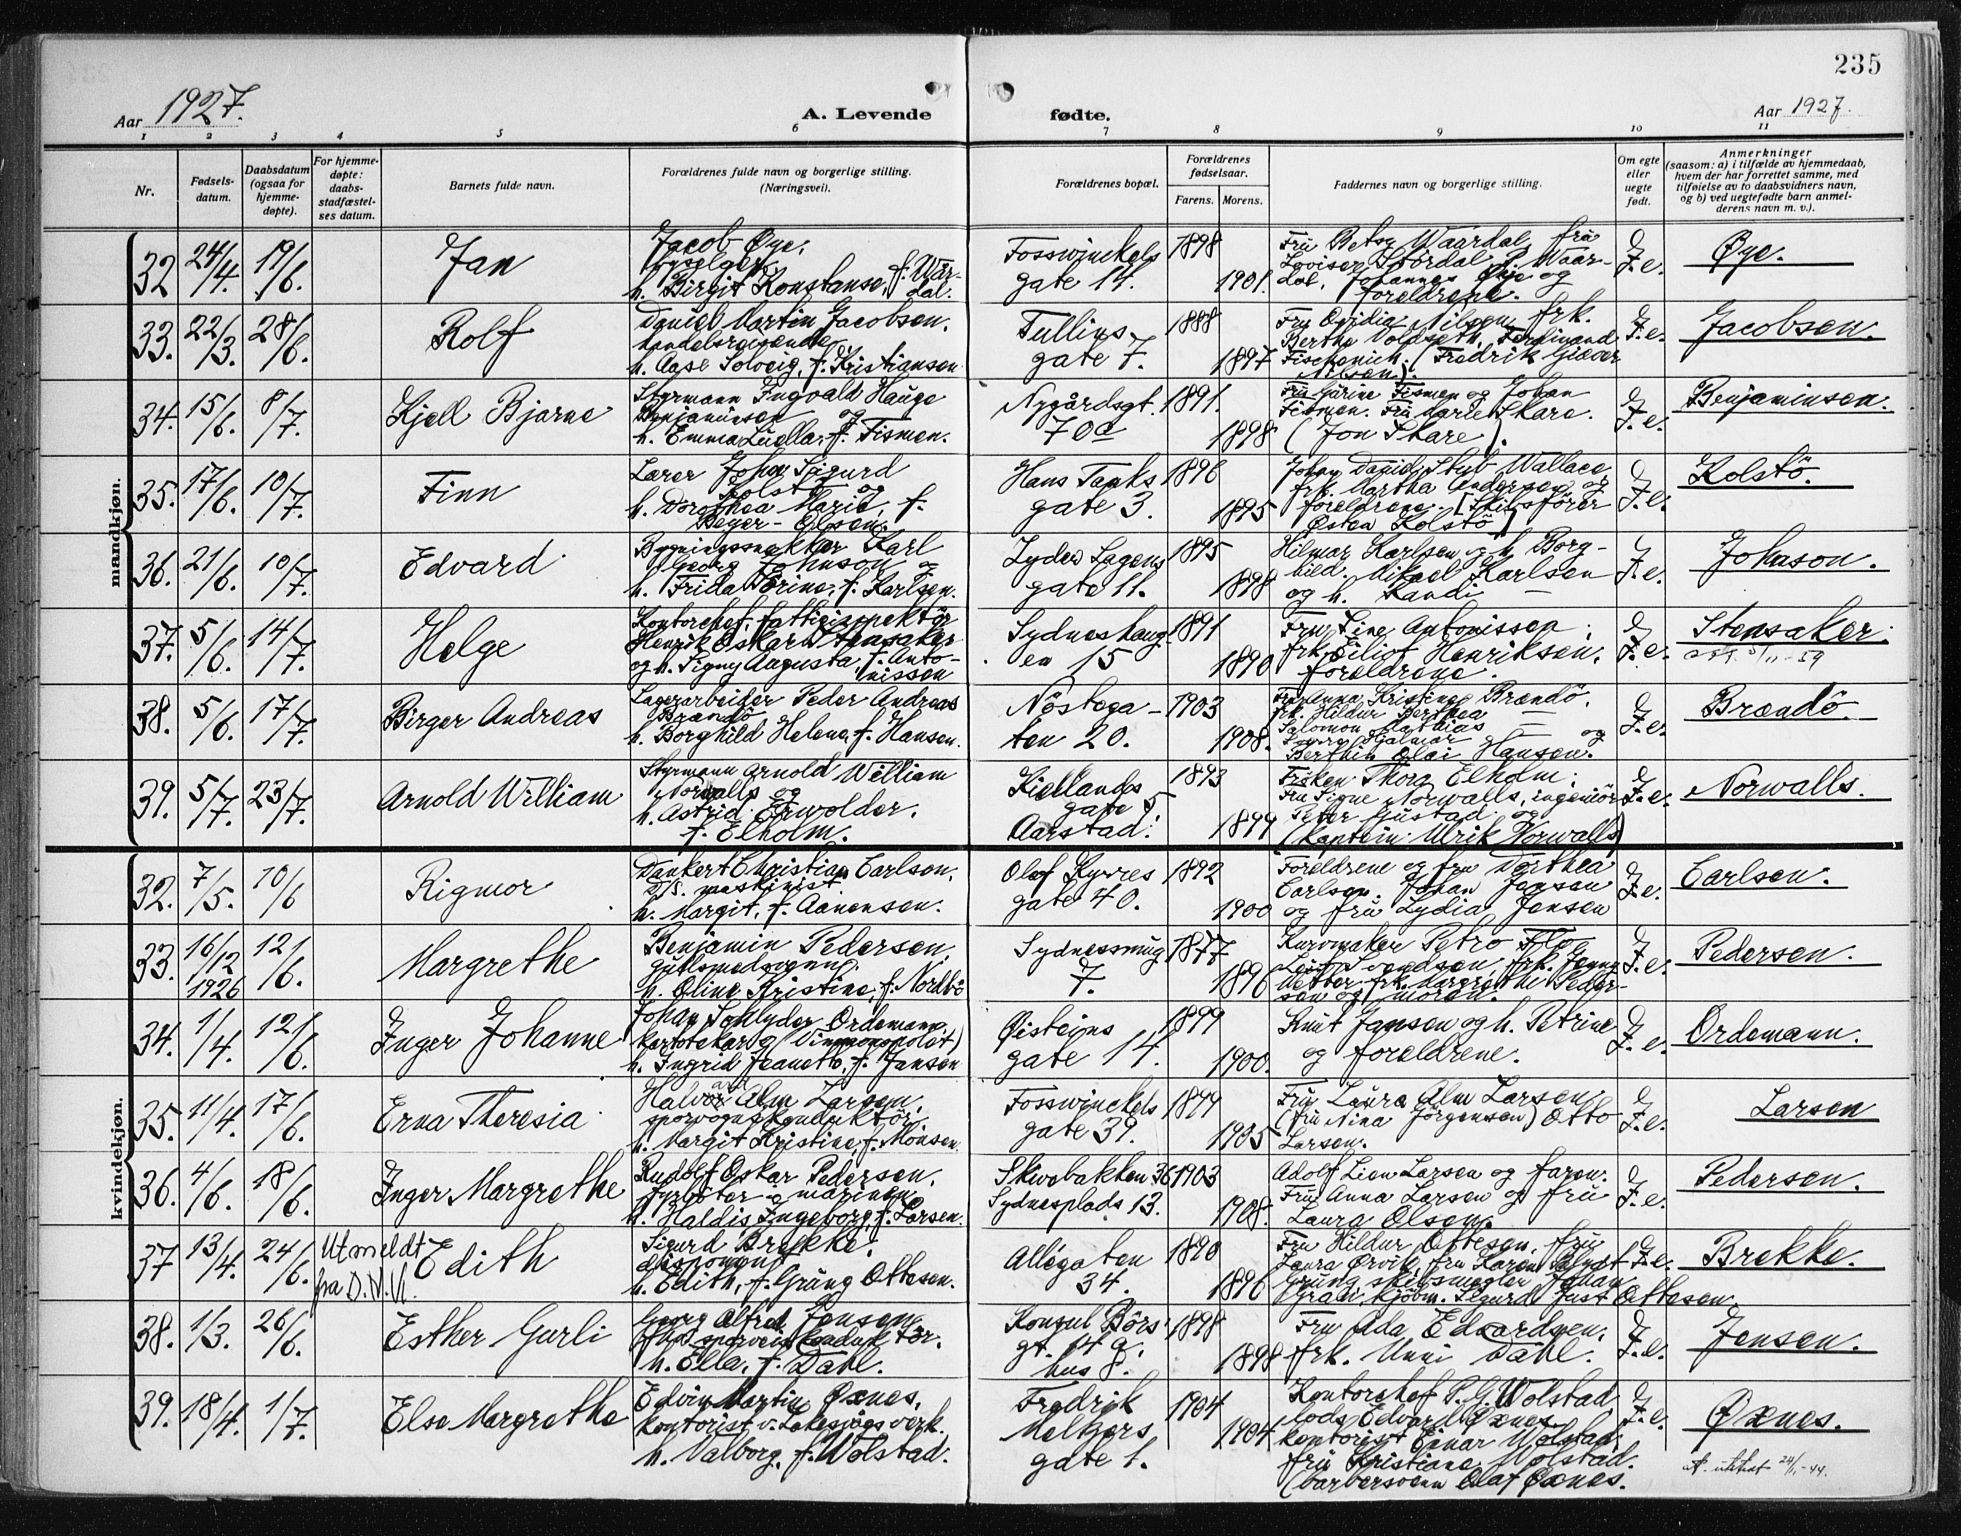 235
Aar 1927.
A. Levende
fødte.
Aar 1927.
1 2 3 4 5 6 7 8 9 10 11
Nr.
Fødsels-
datum.
Daabsdatum
(ogsaa for
hjemme-
døpte).
For hjemme-
døpte:
daabs-
stadfæstel-
ses datum.
Barnets fulde navn.
Forældrenes fulde navn og borgerlige stilling.
(Næringsvei).
Forældrenes bopæl.
Forældrenes
fødselsaar.
Farens. Morens.
Faddernes navn og borgerlige stilling.
Om egte
eller
uegte
født.
Anmerkninger
(saasom: a) i tilfælde av hjemmedaab,
hvem der har forrettet samme, med
tilføielse av to daabsvidners navn,
og b) ved uegtefødte barn anmel-
derens navn m. v.).
mandkjøn.
32 24/4. 19/6. Jan
Jacob Øye,
h. Birgit Konstanse, f. Waar-
dal.
Fosswinckels
gate 14.
1898
1901.
Fru Betsy Waardal, fru
Lovise Stordal, P. Waar-
dal, Johannes Øye og
foreldrene.
J. e.
Øye.
33. 22/3. 28/6. Rolf
Daniel Martin Jacobsen.
handelsreisende
h. Aase Solveig, f. Kristiansen
Tullins-
gate 7.
1888
1897
Fru Ovidia Nilsen, frk.
Berthe Voldseth, Ferdinand
Nilsen).
J. e.
Jacobsen.
34. 15/6. 8/7. Kjell Bjarne
Styrmann Ingvald Hauge
Benjaminsen og
h. Emma Luella, f. Fismen.
Nygårdsgt.
70a
1891.
1898
Fismen og Johan
Fismen. Fru Marie Skare.
(Jon Skare).
J. e.
Benjaminsen.
35. 17/6. 10/7. Finn
Lærer Johan Sigurd
Kolstö og
h. Dorothea Marie, f.
Beyer-Olsen.
Hans Tanks
gate 3.
1896
1895
Johan David Stub Wallace
frk. Martha Andersen og
foreldrene. [Skibsförer
Østen Kolstö]
J. e.
Kolstö.
36. 21/6. 10/7. Edvard
Bygningssnekker Karl
Georg Johnson og
h. Frida Torine, f. Karlsen.
Lyder Sagens
gate 11.
1895
1898
Hilmar Karlsen og h. Borg-
hild. Mikael Karlsen
og h. Randi —
J. e.
Johnson.
37. 5/6. 14/7. Helge
Kontorchef, fattiginspektör
Henrik Oskar Stensaker
og h. Signy Augusta, f. Anto-
nissen
Sydneshaug-
en 15
1891
1890
Fru Sine Antonissen,
frk. Eiliot Henriksen.
foreldrene.
J. e.
Stensaker.
38. 5/6. 17/7. Birger Andreas
Lagerarbeider Peder Andreas
Brændö
h. Borghild Helene, f. Hansen.
Nöstega-
ten 20.
1903
1908.
Fru Anna Kristine Brændö.
frk. Hildur Berthea —
Salomon Mathias —
Georg Hjalmar — og
Berthin Olai Hansen.
J. e.
Brændö.
39. 5/7. 23/7. Arnold William
Styrmann Arnold William
Norwalls og
h. Astrid
f. Elholm.
Kiellands
gate 5
Aarstad.
1893
1899
Fröken Thora Elholm.
Fru Signe Norwalls, ingeniör
(kaptein Ulrik Norwalls)
J. e.
Norwalls.
kvindekjøn.
32. 7/5. 10/6 Rigmor
Dankert Christian Carlsen,
maskinist.
h. Margit, f. Aanensen.
Olaf Kyrres
gate 40.
1892
1900
Foreldrene og fru Dorthea
Carlsen. Johan Jansen
og fru Lydia Jensen
J. e.
Carlsen.
33. 16/12 1926 12/6. Margrethe
Benjamin Pedersen,
h. Oline Kristine, f. Nordbö
Sydnessmug
7.
1877
1896
Kurvmaker Petro
frk. Jenny
frk. Margrethe Peder-
sen og moren.
J. e.
Pedersen.
34. 1/4. 12/6. Inger Johanne
Johan Schlyder Ordemann,
h. Ingrid Jeanette, f. Jansen
Øisteins
gate 14.
1899
1900.
Knut Jansen og h. Petrine
og foreldrene.
J. e.
Ordemann.
35. 11/4. 17/6. Erna Theresia
Halvor Alm Larsen,
sporvognskonduktör.
h. Margit Kristine, f. Monsen.
Fosswinckels
gate 39.
1899
1905
Fru Laura Alm Larsen.
(fru Nina Jörgensen) Otto
Larsen.
J. e.
Larsen
36. 4/6. 18/6. Inger Margrethe
Rudolf Oskar Pedersen.
fyrböter i marinen,
h. Haldis Ingeborg, f. Larsen.
Skivebakken 36
Sydnesplads 13.
1903
1908.
Adolf Lien Larsen og faren.
Fru Anna Larsen og fru
Laura Olsen.
J. e.
Pedersen.
37 13/4. 24/6. Utmeldt
fra D. N. K.
Edith
Sigurd Brekke,
disponent
h. Edith, f. Grüng Ottesen.
Allégaten
34.
1890
1896
Fru Hildur Ottesen, fru
Laura Ørvik, fru Karen
Grüng, skibsmegler Johan
kjöbm. Sigurd Just Ottesen
J. e.
Brekke.
38. 1/3. 26/6. Esther Gurli
Georg Alfred Jensen
h. Ella, f. Dahl.
Konsul Börs
gt. 14 a.
hus 8.
1898
1898
Fru Ada Edvardsen,
frk. Unni Dahl.
J. e.
Jensen.
39. 18/4. 1/7. Else Margrethe
Edvin Martin Øxnes,
kontorist v. Laksevågs verk.
h. Valborg, f. Wolstad.
Fredrik
Meltzers
gate 1.
1904
1904
Kontorchef P. G. Wolstad,
lods Edvard Øxnes,
kontorist Einar Wolstad,
fru Kristiane Wolstad.
(barbersvenn Olaf Øxnes.
J. e.
Øxnes.
24/1-44.